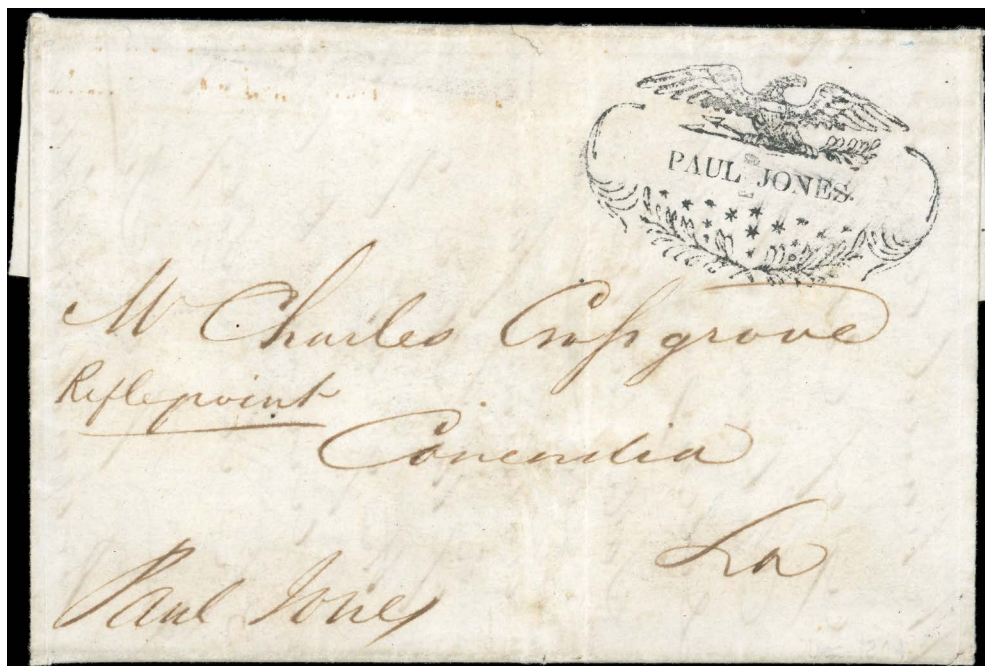 PAUL JONES
Mr Charles Cossgrove
Riflepoint
Concordia
La
Paul Jones